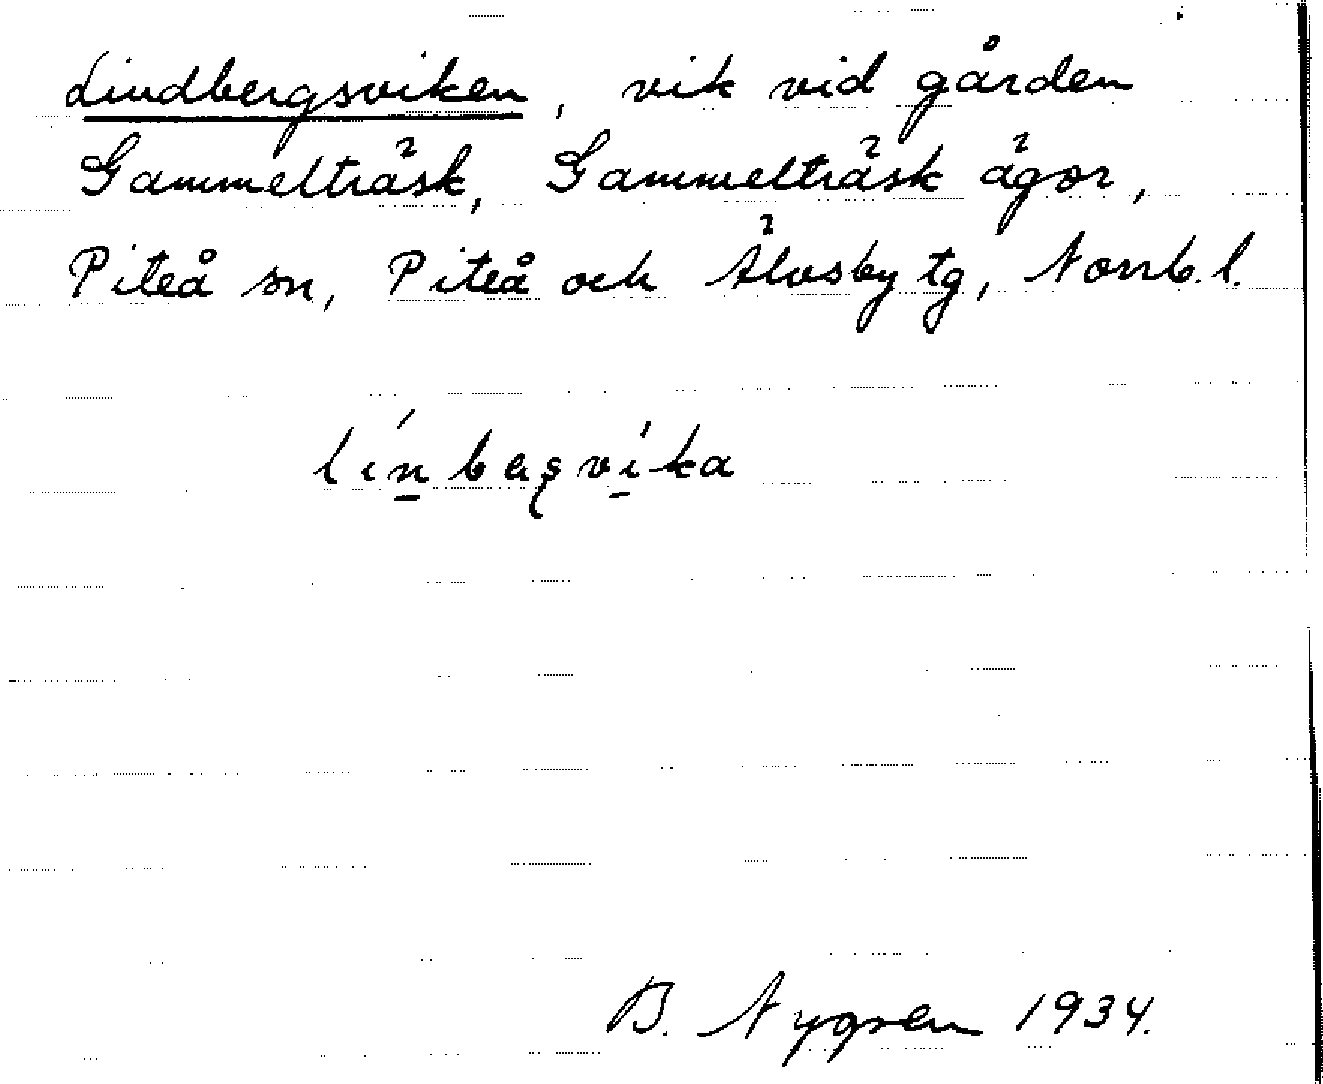 Lindbergsviken, vik vid gården
Gammelträsk, Gammelträsk ägor,
Piteå sn, Piteå och Älvsby tg, Norrb. l.
línbagvíka
B. Nygren 1934.